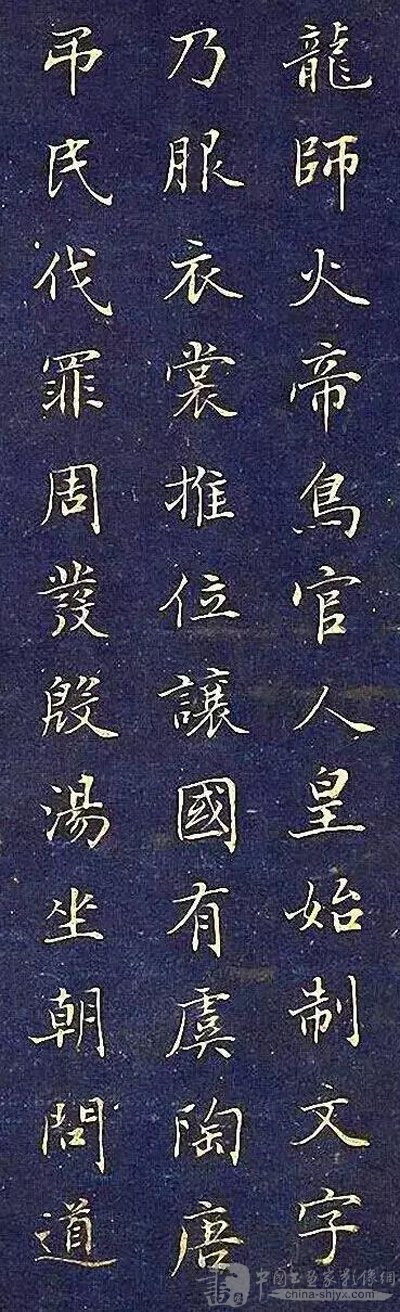 龍師火帝鳥官人皇始制文字
乃服衣裳推位讓國有虞陶唐
弔民伐罪周發殷湯坐朝問道
中國書畫家影像網
china-shjyx.com